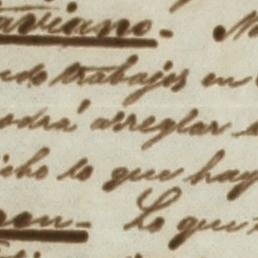 aviano. N
ndo trabajos en
odrá arreglar
icho lo que hay
en. Lo que